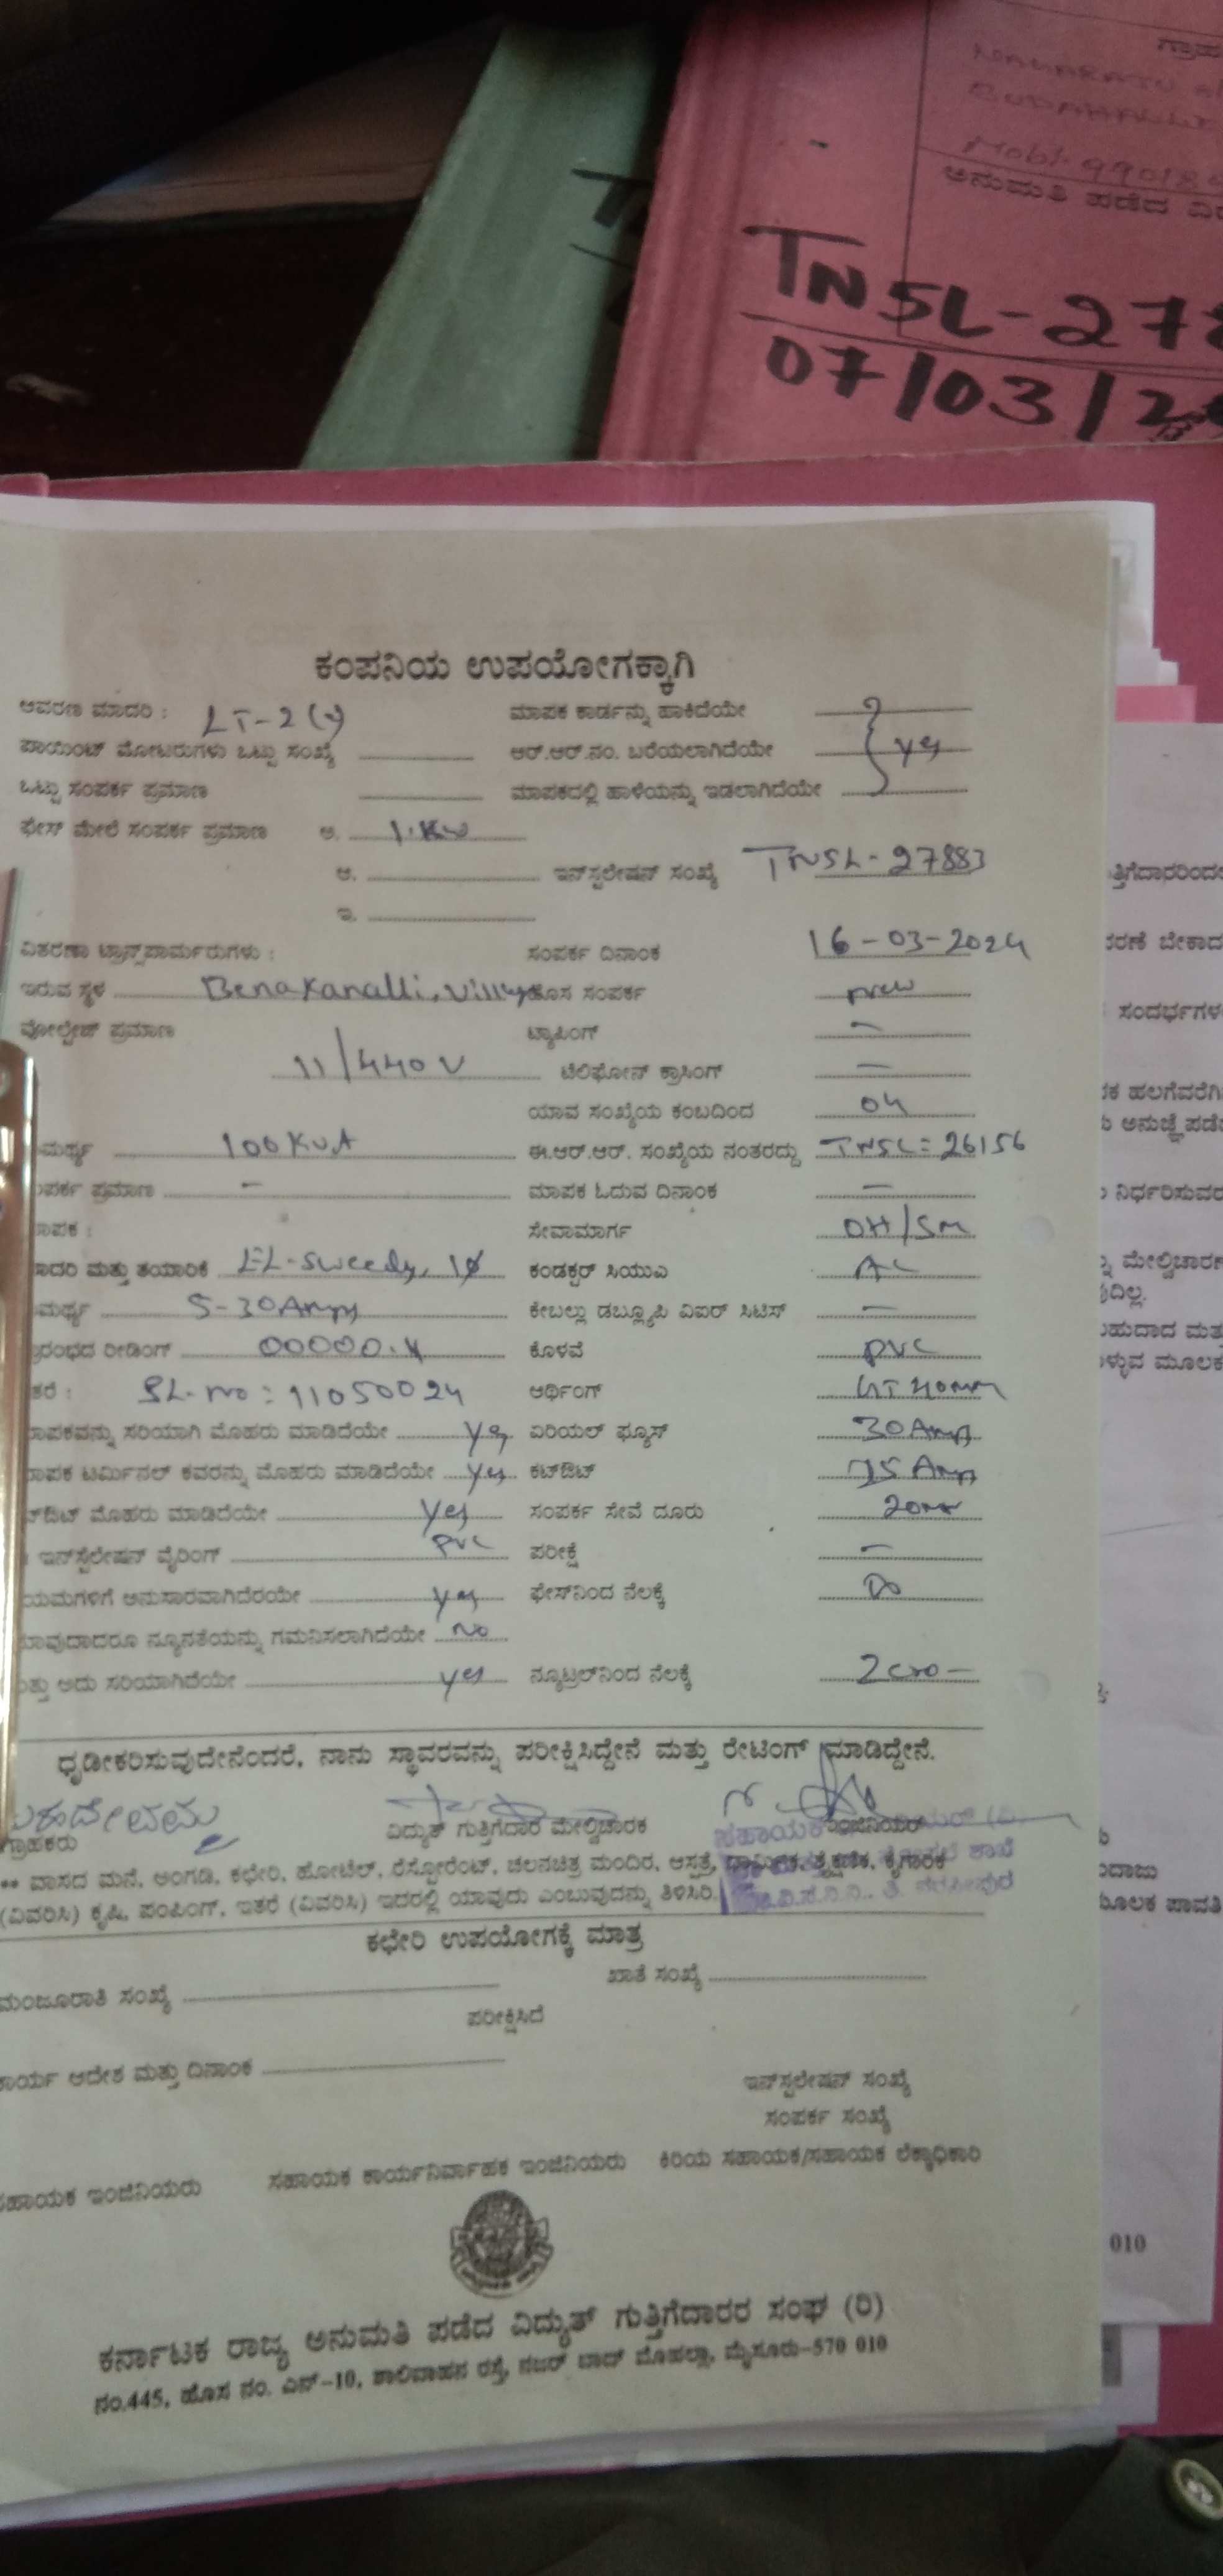 ಗ್ರಾಹ
Mob:- 99018
ಅನುಮತಿ ಪಡೆದ
T
TNSL-278
07/03/2
ಕಂಪನಿಯ ಉಪಯೋಗಕ್ಕಾಗಿ
ಆವರಣ ಮಾದರಿ : LT-2 ಮಾಪಕ ಕಾರ್ಡನ್ನು ಹಾಕಿದೆಯೇ
ಪಾಯಿಂಟ್ ಮೋಟರುಗಳು ಒಟ್ಟು ಸಂಖ್ಯೆ ಆರ್.ಆರ್.ನಂ. ಬರೆಯಲಾಗಿದೆಯೇ yes
ಒಟ್ಟು ಸಂಪರ್ಕ ಪ್ರಮಾಣ ಮಾಪಕದಲ್ಲಿ ಹಾಳೆಯನ್ನು ಇಡಲಾಗಿದೆಯೇ
ಫೇಸ್ ಮೇಲೆ ಸಂಪರ್ಕ ಪ್ರಮಾಣ ಅ. 1.KW
ಆ. ಇನ್‌ಸ್ಟಲೇಷನ್ ಸಂಖ್ಯೆ TNSL-27883
ಇ.
ವಿತರಣಾ ಟ್ರಾನ್ಸ್‌ಪಾರ್ಮರುಗಳು : ಸಂಪರ್ಕ ದಿನಾಂಕ 16-03-2024
ಇರುವ ಸ್ಥಳ Benakanalli, ಹೊಸ ಸಂಪರ್ಕ new
ವೋಲ್ಟೇಜ್ ಪ್ರಮಾಣ ಟ್ಯಾಪಿಂಗ್ —
11/440 V ಟೆಲಿಫೋನ್ ಕ್ರಾಸಿಂಗ್ —
ಯಾವ ಸಂಖ್ಯೆಯ ಕಂಬದಿಂದ 04
ಮರ್ಥ್ಯ 100 KVA ಈ.ಆರ್.ಆರ್. ಸಂಖ್ಯೆಯ ನಂತರದ್ದು TNSL=26156
ಪರ್ಕ ಪ್ರಮಾಣ - ಮಾಪಕ ಓದುವ ದಿನಾಂಕ —
ಾಪಕ : ಸೇವಾಮಾರ್ಗ OH/SM
ಾದರಿ ಮತ್ತು ತಯಾರಿಕೆ EL-Sweedy, 1Ø ಕಂಡಕ್ಟರ್ ಸಿಯುಎ AL
ಮರ್ಥ್ಯ 5-30Amps ಕೇಬಲ್ಲು ಡಬ್ಲ್ಯೂಪಿ ವಿಐರ್ ಸಿಟಿಸ್ —
ರಂಭದ ರೀಡಿಂಗ್ 00000. ಕೊಳವೆ PVC
ತರೆ : SL.no: 11050024 ಆರ್ಥಿಂಗ್ 40mm
ಾಪಕವನ್ನು ಸರಿಯಾಗಿ ಮೊಹರು ಮಾಡಿದೆಯೇ yes ಏರಿಯಲ್ ಫ್ಯೂಸ್ 30Amp
ಾಪಕ ಟರ್ಮಿನಲ್ ಕವರನ್ನು ಮೊಹರು ಮಾಡಿದೆಯೇ yes ಕಟ್‌ಔಟ್ 15 Amp
ಟ್‌ಔಟ್ ಮೊಹರು ಮಾಡಿದೆಯೇ yes ಸಂಪರ್ಕ ಸೇವೆ ದೂರು
ಇನ್‌ಸ್ಟಲೇಷನ್ ವೈರಿಂಗ್ PVC ಪರೀಕ್ಷೆ —
ಯಮಗಳಿಗೆ ಅನುಸಾರವಾಗಿದೆರಯೇ yes ಫೇಸ್‌ನಿಂದ ನೆಲಕ್ಕೆ
ಾವುದಾದರೂ ನ್ಯೂನತೆಯನ್ನು ಗಮನಿಸಲಾಗಿದೆಯೇ No
ತ್ತು ಅದು ಸರಿಯಾಗಿದೆಯೇ yes ನ್ಯೂಟ್ರಲ್‌ನಿಂದ ನೆಲಕ್ಕೆ
ಧೃಡೀಕರಿಸುವುದೇನೆಂದರೆ, ನಾನು ಸ್ಥಾವರವನ್ನು ಪರೀಕ್ಷಿಸಿದ್ದೇನೆ ಮತ್ತು ರೇಟಿಂಗ್ ಮಾಡಿದ್ದೇನೆ.
ಗ್ರಾಹಕರು ವಿದ್ಯುತ್ ಗುತ್ತಿಗೆದಾರ ಮೇಲ್ವಿಚಾರಕ ಸಹಾಯಕ ಇಂಜಿನಿಯರ್
** ವಾಸದ ಮನೆ, ಅಂಗಡಿ, ಕಛೇರಿ, ಹೋಟೆಲ್, ರೆಸ್ಟೋರೆಂಟ್, ಚಲನಚಿತ್ರ ಮಂದಿರ, ಆಸ್ಪತ್ರೆ, ಧಾರ್ಮಿಕ, ಶೈಕ್ಷಣಿಕ, ಕೈಗಾರಿಕೆ
(ವಿವರಿಸಿ) ಕೃಷಿ, ಪಂಪಿಂಗ್, ಇತರೆ (ವಿವರಿಸಿ) ಇದರಲ್ಲಿ ಯಾವುದು ಎಂಬುವುದನ್ನು ತಿಳಿಸಿರಿ.
ಕಛೇರಿ ಉಪಯೋಗಕ್ಕೆ ಮಾತ್ರ
ಮಂಜೂರಾತಿ ಸಂಖ್ಯೆ ಖಾತೆ ಸಂಖ್ಯೆ
ಪರೀಕ್ಷಿಸಿದೆ
ಕಾರ್ಯ ಆದೇಶ ಮತ್ತು ದಿನಾಂಕ
ಇನ್‌ಸ್ಟಲೇಷನ್ ಸಂಖ್ಯೆ
ಸಂಪರ್ಕ ಸಂಖ್ಯೆ
ಸಹಾಯಕ ಇಂಜಿನಿಯರು ಸಹಾಯಕ ಕಾರ್ಯನಿರ್ವಾಹಕ ಇಂಜಿನಿಯರು ಕಿರಿಯ ಸಹಾಯಕ/ಸಹಾಯಕ ಲೆಕ್ಕಾಧಿಕಾರಿ
ಕರ್ನಾಟಕ ರಾಜ್ಯ ಅನುಮತಿ ಪಡೆದ ವಿದ್ಯುತ್ ಗುತ್ತಿಗೆದಾರರ ಸಂಘ (ರಿ)
ನಂ.445, ಹೊಸ ನಂ. ಎನ್-10, ಶಾಲಿವಾಹನ ರಸ್ತೆ, ನಜರ್ ಬಾದ್ ಮೊಹಲ್ಲಾ, ಮೈಸೂರು-570 010
ತ್ತಿಗೆದಾರರಿಂದ
ರಣೆ ಬೇಕಾದ
ಸಂದರ್ಭಗಳ
ಕ ಹಲಗೆವರೆಗಿ
ಅನುಜ್ಞೆ ಪಡೆ
ನಿರ್ಧರಿಸುವ
ಮೇಲ್ವಿಚಾರ
ದಿಲ್ಲ.
ಹುದಾದ ಮತ
ಳ್ಳುವ ಮೂಲಕ
ಂದಾಜು
ಮೂಲಕ ಪಾವತಿ
010